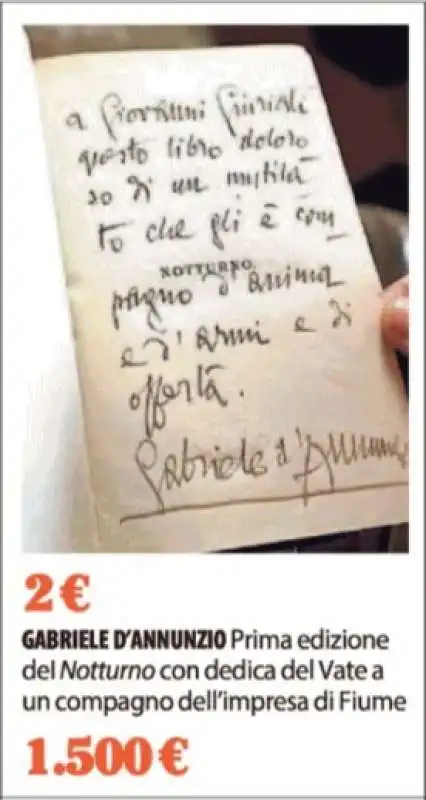 a Giovanni Giuriati
questo libro doloro
so di un mutila
to che gli è com
NOTTURNO
pagno d'anima
e d'armi e di
offerta.
Gabriele d'Annunzio
2 €
GABRIELE D'ANNUNZIO Prima edizione
del Notturno con dedica del Vate a
un compagno dell'impresa di Fiume
1.500 €